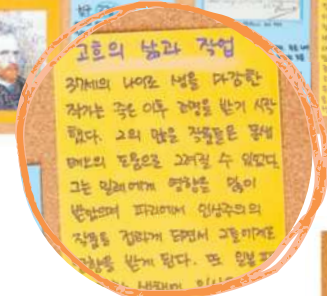 고흐의 삶과 작업
37세의 나이로 생을 마감한
작가는 죽은 이후 조명을 받기 시작
했다. 그의 많은 작품들은 동생
테오의 도움으로 그려질 수 있었다.
그는 밀레에게 영향을 많이
받았으며 파리에서 인상주의의
작품을 접하게 되면서 그들에게도
영향을 받게 된다. 또 일본